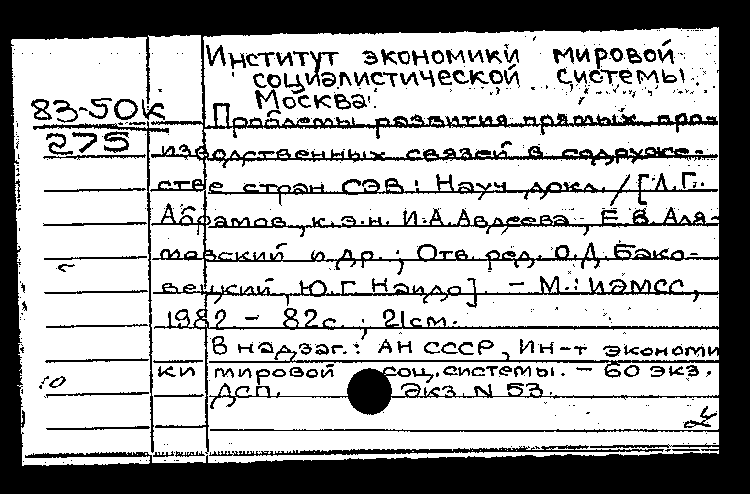 Институт экономики мировой
социалистической системы.
Москва.
83-50к
275
Проблемы развития прямых про-
изводственных связей в содруже-
стве стран СЭВ: Науч докл. / [Л.Г.
Абрамов, к.э.н. И.А. Авдеева, Е.В. Аля-
мовский и др.; Отв. ред. О.Д. Бако-
вецкий, Ю.Г. Наидо]. - М.: ИЭМСС,
1982 - 82с.; 21см.
В надзаг.: АН СССР, Ин-т экономи
ки мировой соц. системы. - 60 экз.
ДСП. Экз. N 53.
10